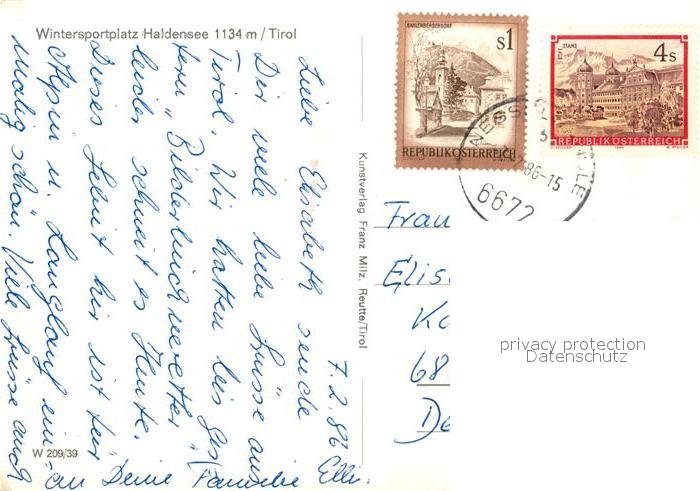 Wintersportplatz Haldensee 1134 m / Tirol
7. 2. 86
Liebe Elisabeth sende
Dir viele liebe Grüsse aus
Tirol. Wir hatten bis ges-
tern „Bilderbuchwetter“
leider schneit es Heute.
Dieses Gebiet hier ist für
Alpin u. Langlauf ein-
malig schön. Viele Grüsse auch
an Deine Familie Elli.
W 209/39
Kunstverlag Franz Milz, Reutte/Tirol
KAHLENBERGERDORF
S1
REPUBLIK ÖSTERREICH
STIFT STAMS
4 S
REPUBLIK ÖSTERREICH
86-15
6672
Frau
Elis
Ka
68
De
privacy protection
Datenschutz